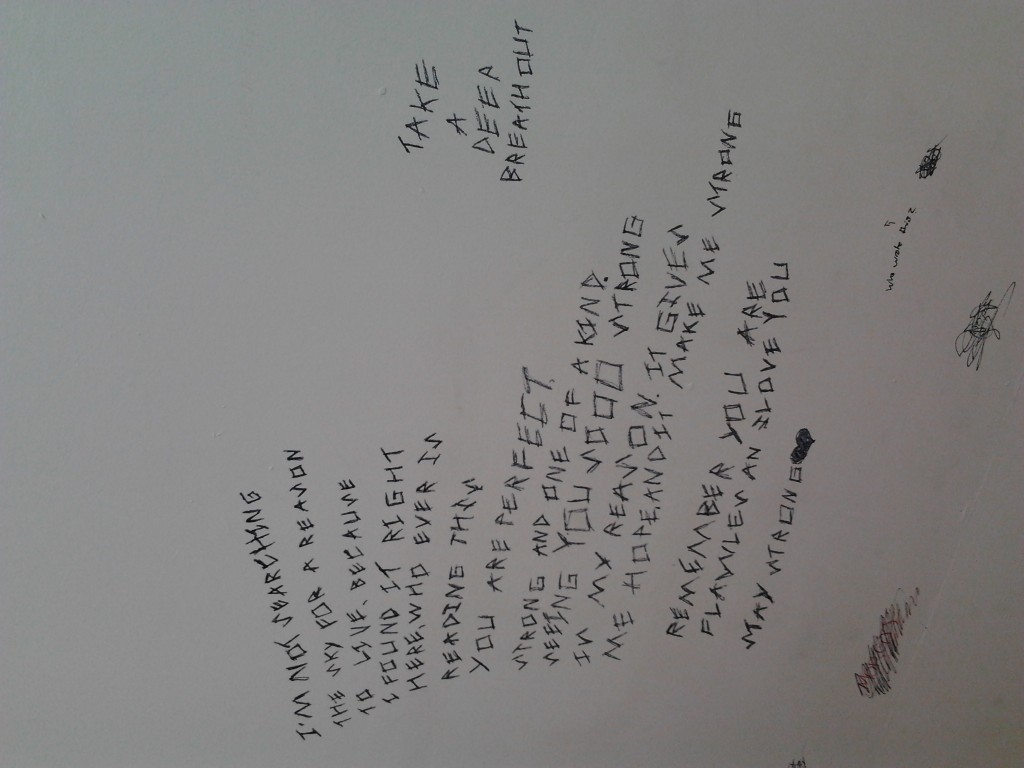 I'M NOT SEARCHING
THE SKY FOR A REASON
TO LIVE. BECAUSE
I FOUND IT RIGHT
HERE. WHO EVER IS
READING THIS
YOU ARE PERFECT,
STRONG AND ONE OF A KIND.
SEEING YOU SOOO STRONG
IS MY REASON. IT GIVES
ME HOPE, AND IT MAKE ME STRONG
REMEMBER YOU ARE
FLAWLESS AN I LOVE YOU
STAY STRONG
TAKE
A
DEEP
BREATH OUT
who wrote this?